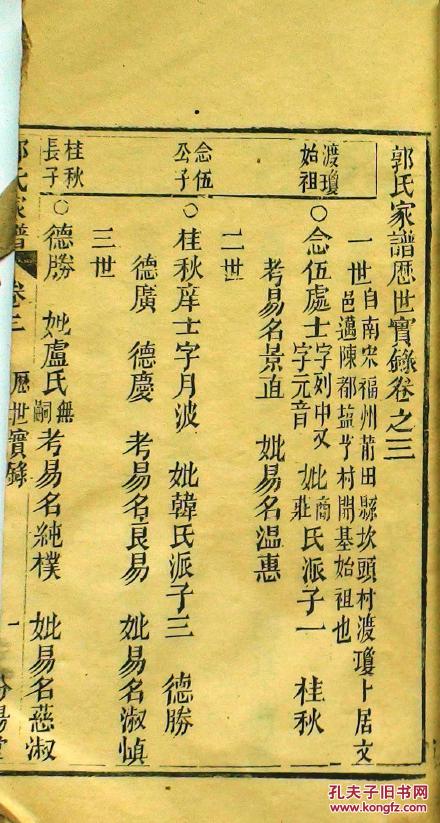 郭氏家譜歷世實錄卷之三
渡瓊始祖
一世自南宋福州莆田縣坎頭村渡瓊卜居文
邑邁陳都塩芋村開基始祖也
○念伍處士字列中又字元音 妣商莊氏派子一 桂秋
考易名景直 妣易名溫惠
二世
念伍公子
○桂秋庠士字月波 妣韓氏派子三 德勝
德廣 德慶 考易名良易 妣易名淑慎
三世
桂秋長子
○德勝 妣盧氏無嗣考易名純樸 妣易名慈淑
郭氏家譜 卷三 歷世實錄 一 汾陽堂
孔夫子旧书网
www.kongfz.com